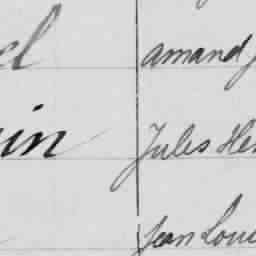 el amand
in Jules Hen
Jean Loui